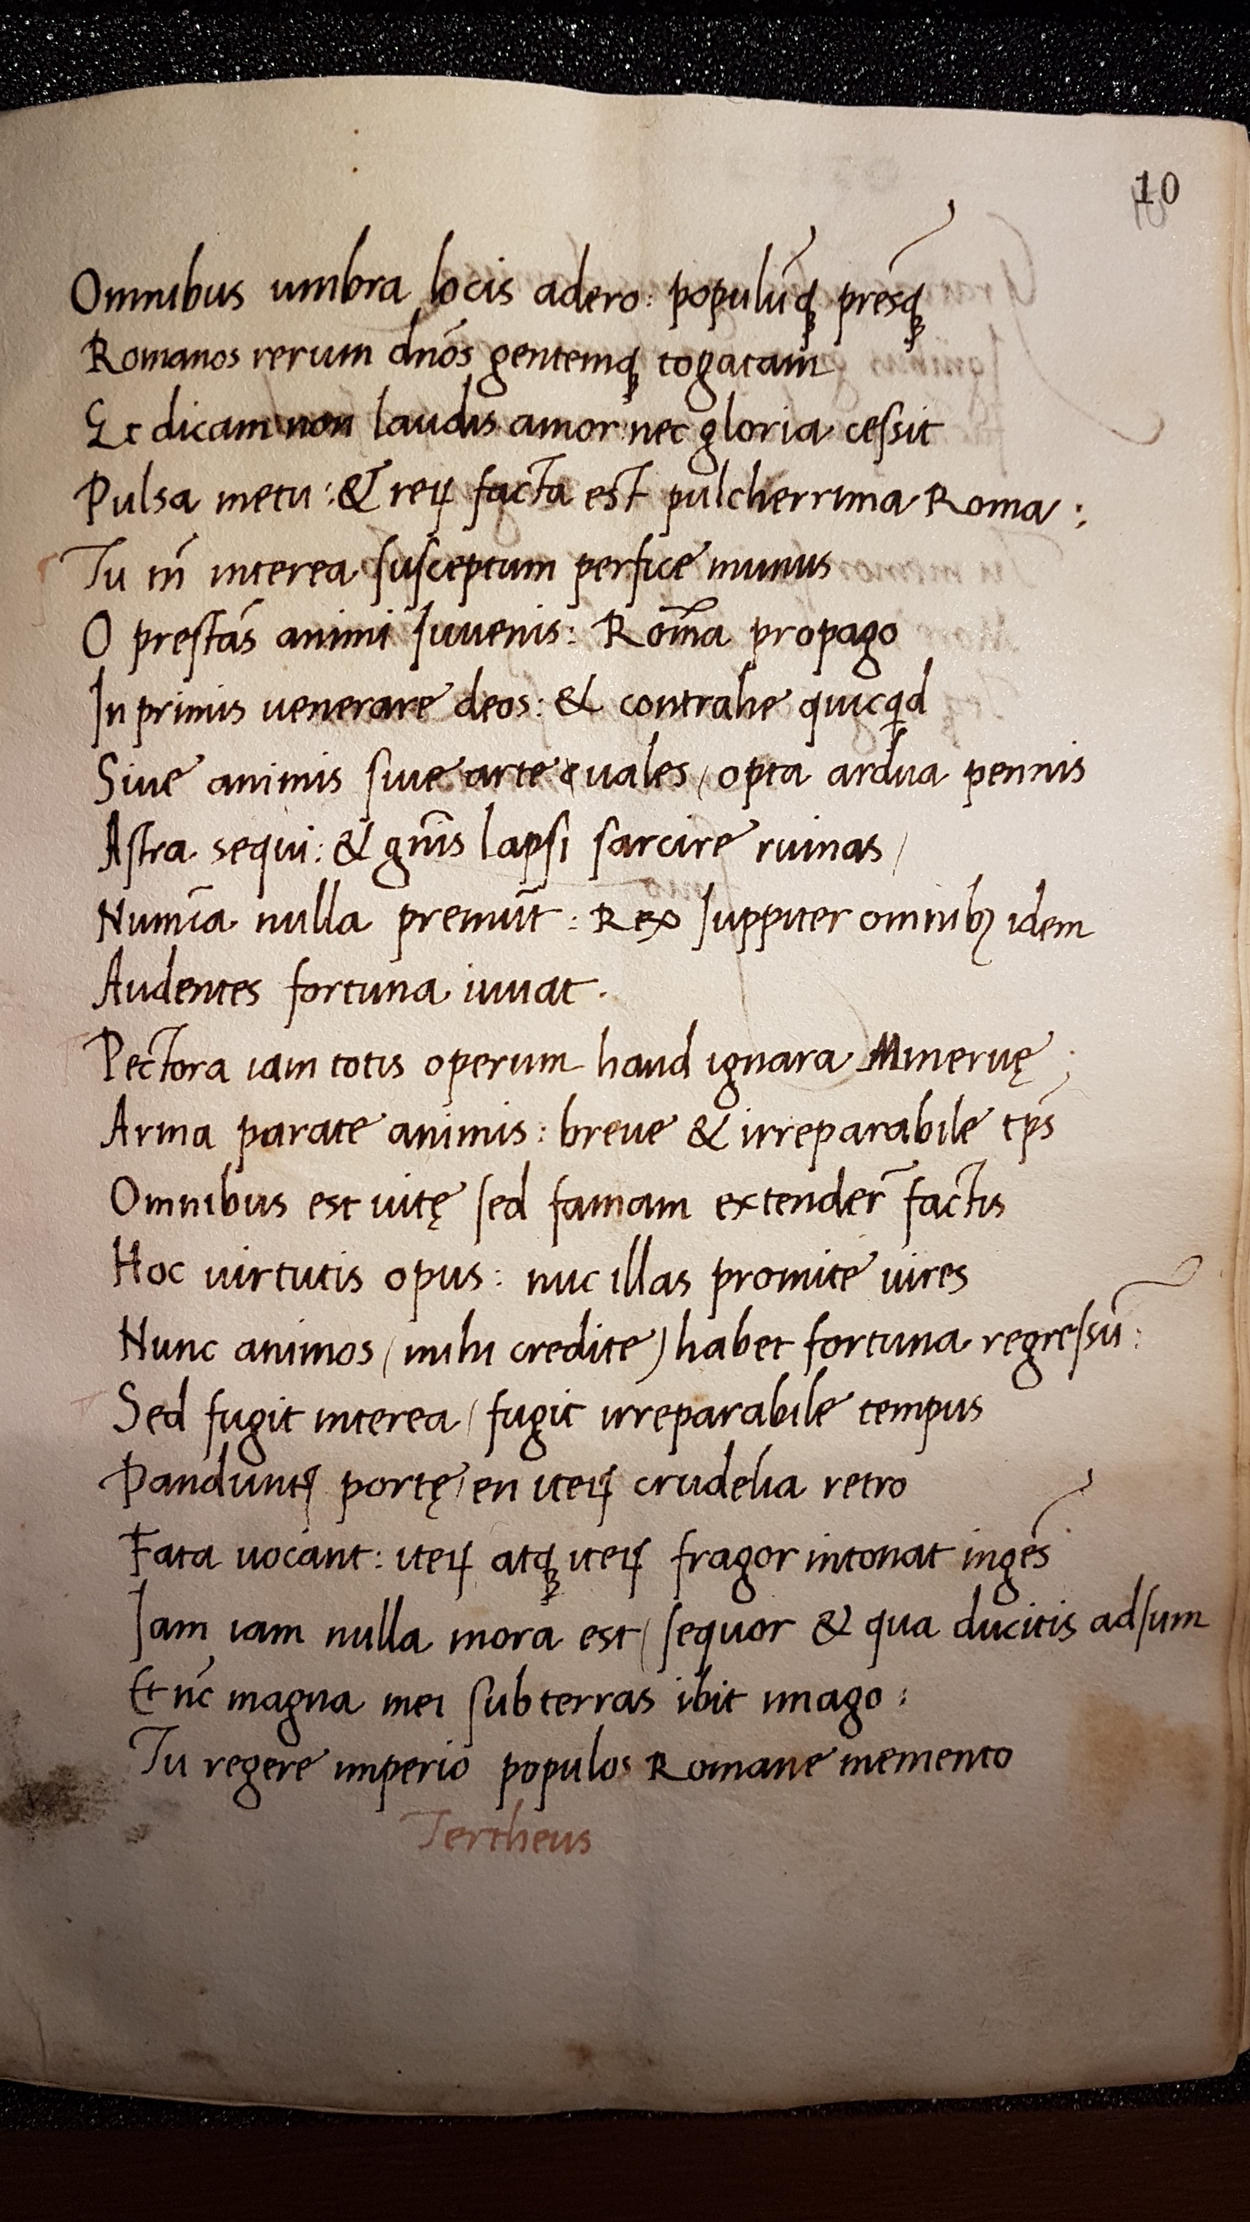 10
Omnibus umbra locis adero: populūq̨ presq̨
Romanos rerum dnōs gentemq̨ togatam
Et dicam non laudis amor: nec gloria cessit
Pulsa metu: & reꝝ facta est pulcherrima Roma:
Tu tn̄ interea susceptum perfice munus
O prestās animi Iuuenis: Romāa propago
In primis uenerare deos: & contrahe quicqd
Siue animis siue arte uales/ opta ardua pennis
Astra sequi: & gn̄is lapsi sarcire ruinas/
Numīa nulla premūt: Rex Iuppiter omnibꝫ idem
Audentes fortuna iuuat.
Pectora iam totis operum haud ignara Mineruę;
Arma parate animis: breue & irreparabile tp̄s
Omnibus est uitę sed famam extender̄ factis
Hoc uirtutis opus: nuc illas promite uires
Nunc animos (mihi credite) habet fortuna regressū:
Sed fugit interea/ fugit irreparabile tempus
Panduntꝝ portę/ en iteꝝ crudelia retro
Fata uocant: iteꝝ atq̨ iteꝝ fragor intonat ingēs
Iam iam nulla mora est/ sequor & qua ducitis adsum
Et nc̄ magna mei sub terras ibit imago:
Tu regere imperio populos Romane memento
Tertheus